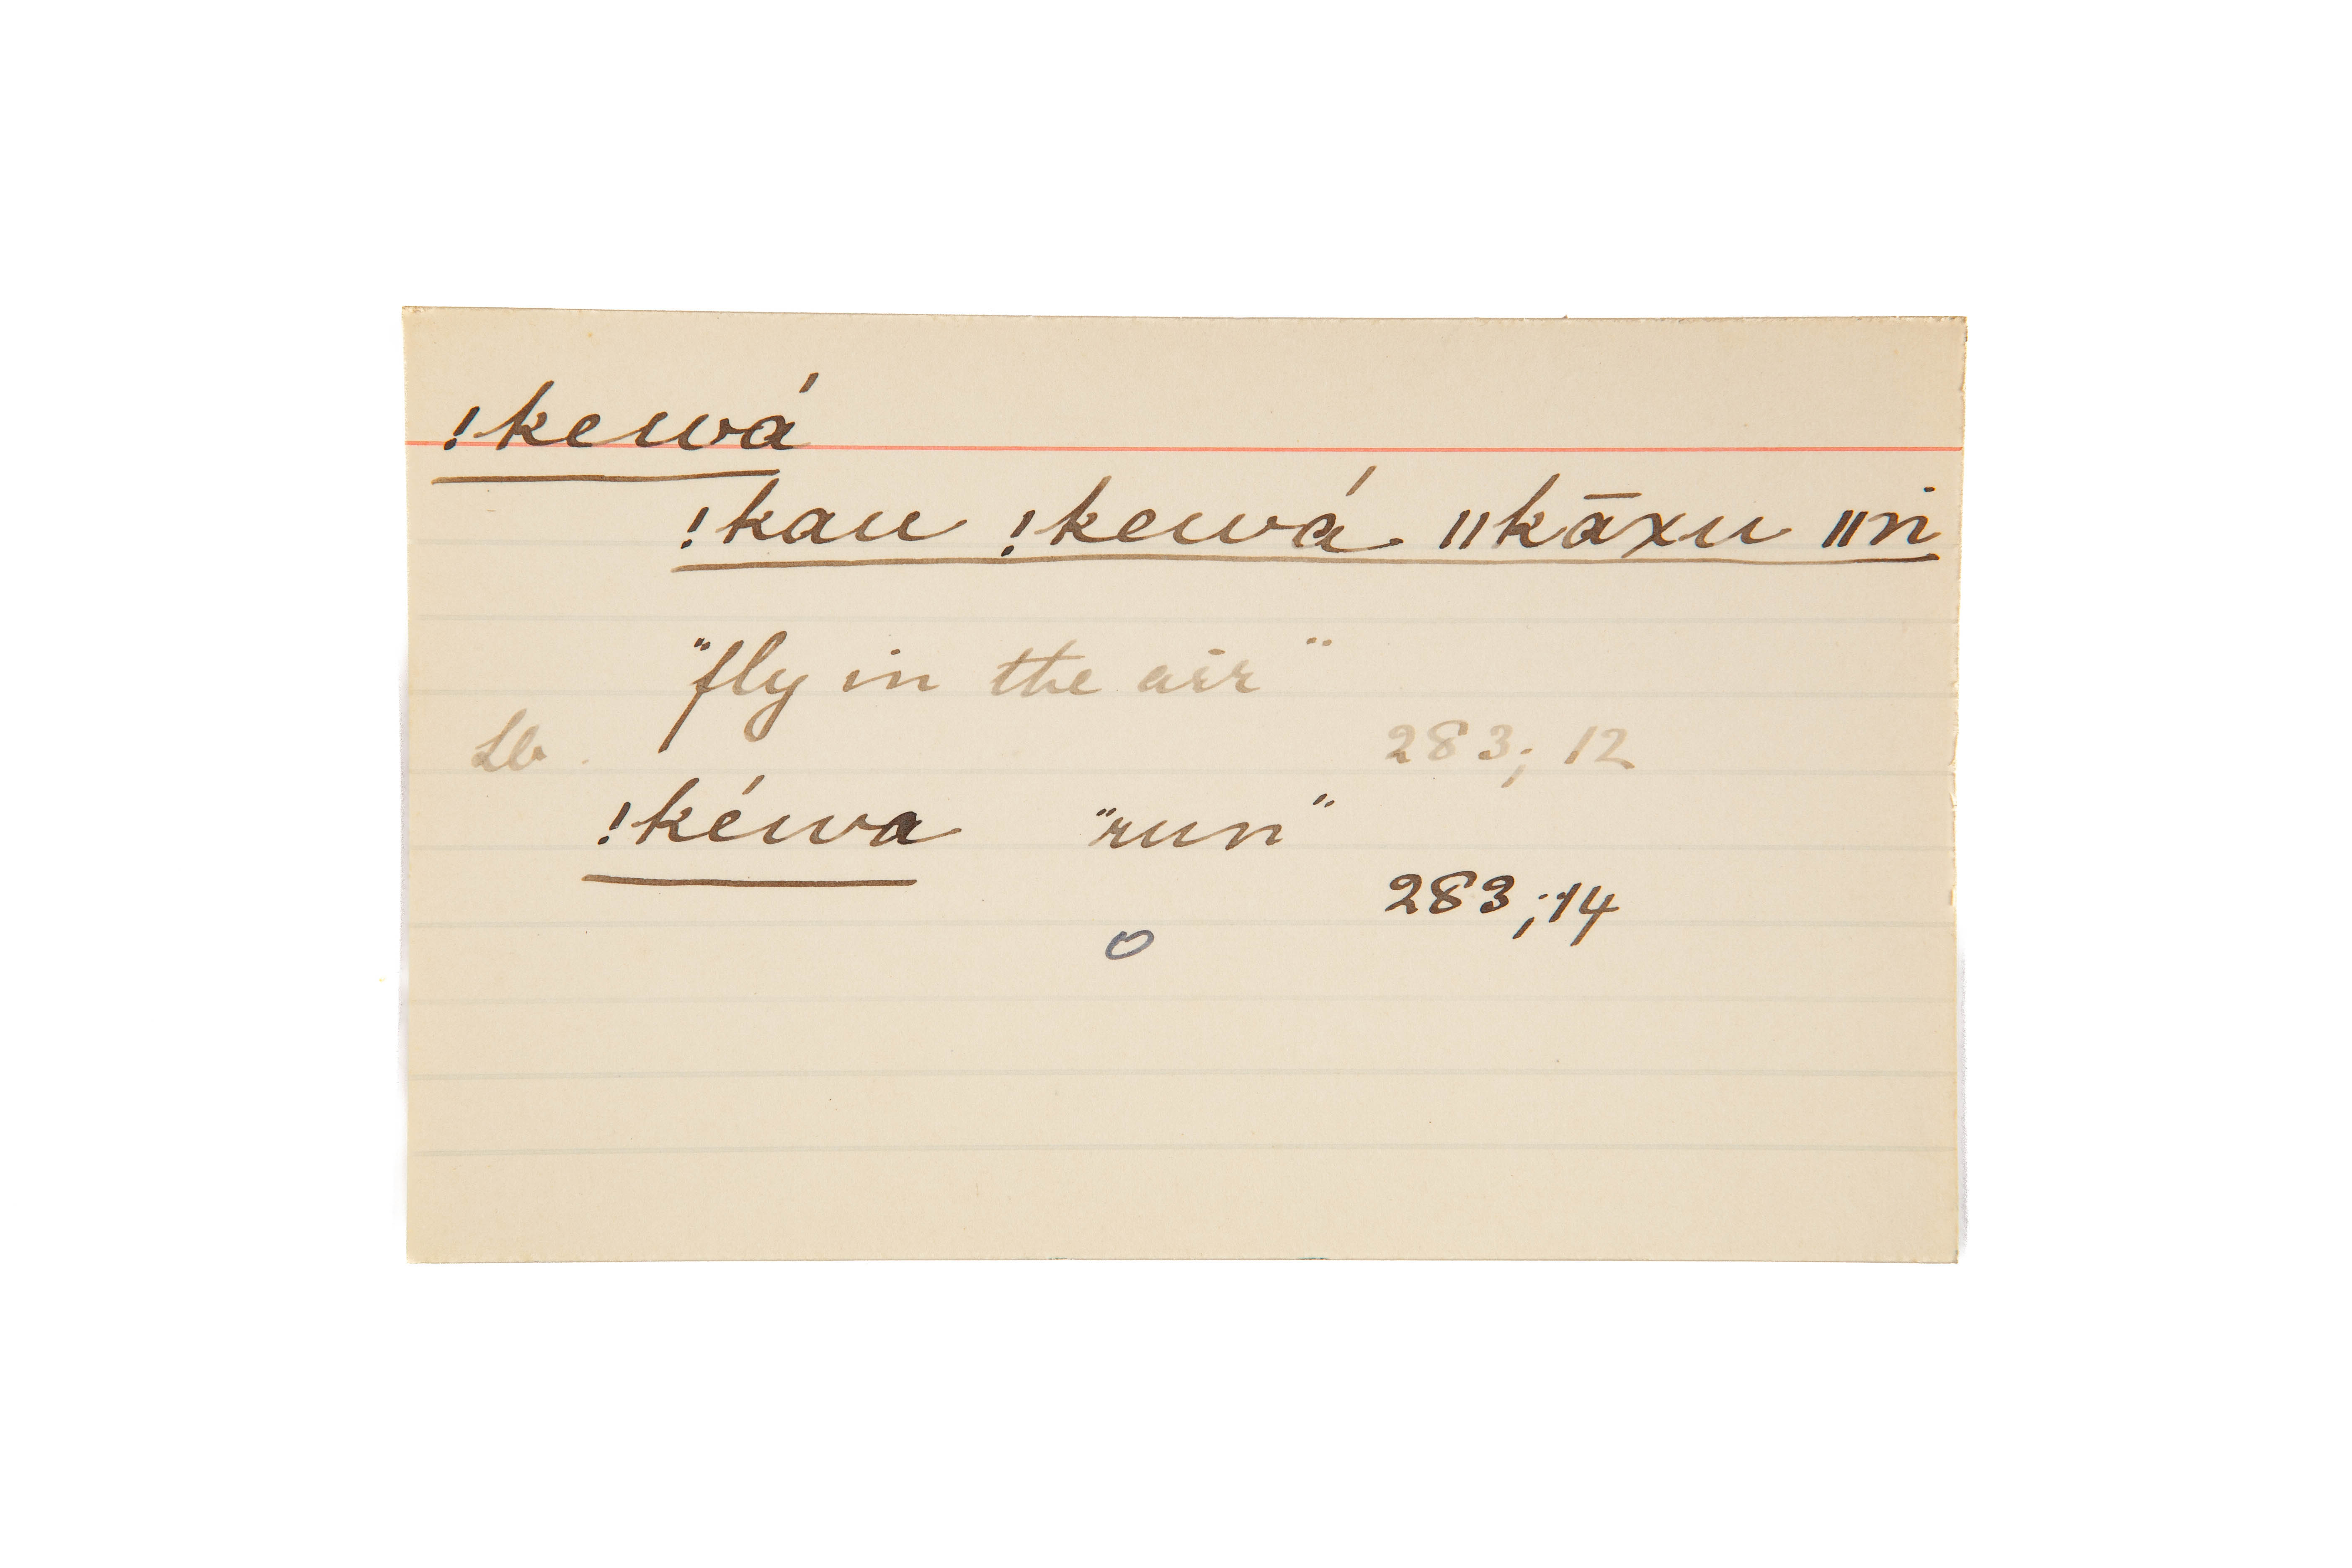 !kewá
!kau !kewá ǁkāxu ǁṅ
"fly in the air"
Lb. 283; 12
!kéwa "run"
283; 14
o